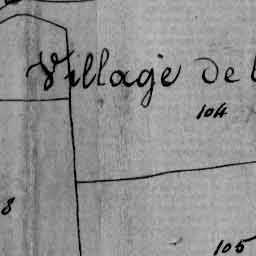 Village de l
104
8
105